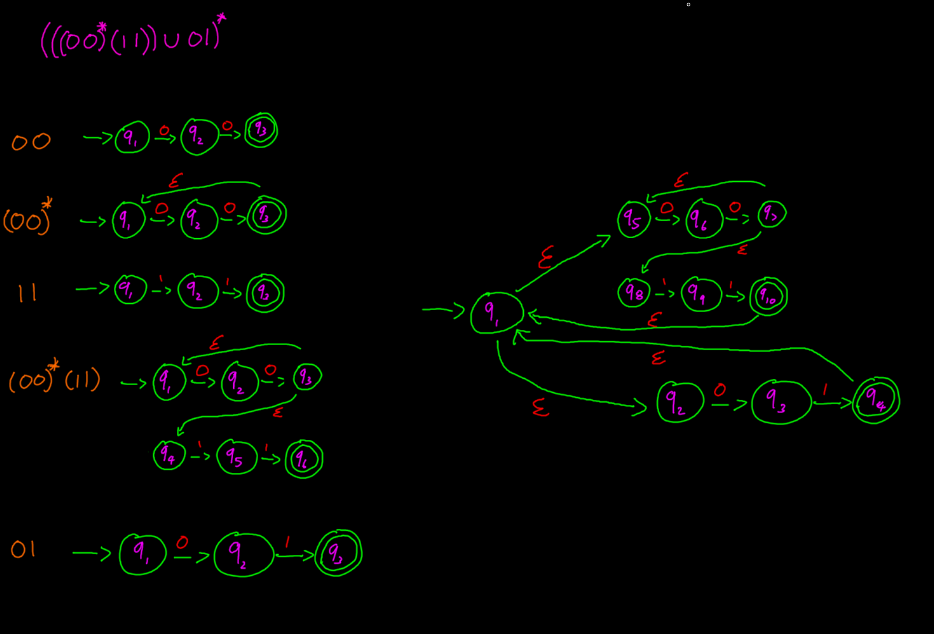 (((00)*(11)) ∪ 01)*
00 q1 0 q2 0 q3
(00)* q1 0 q2 0 q3 ε
11 q1 1 q2 1 q3
(00)*(11) q1 0 q2 0 q3 ε
ε
q4 1 q5 1 q6
01 q1 0 q2 1 q3
ε
q5 0 q6 0 q7
ε
ε
q8 1 q9 1 q10
q1
ε
ε
ε
q2 0 q3 1 q4